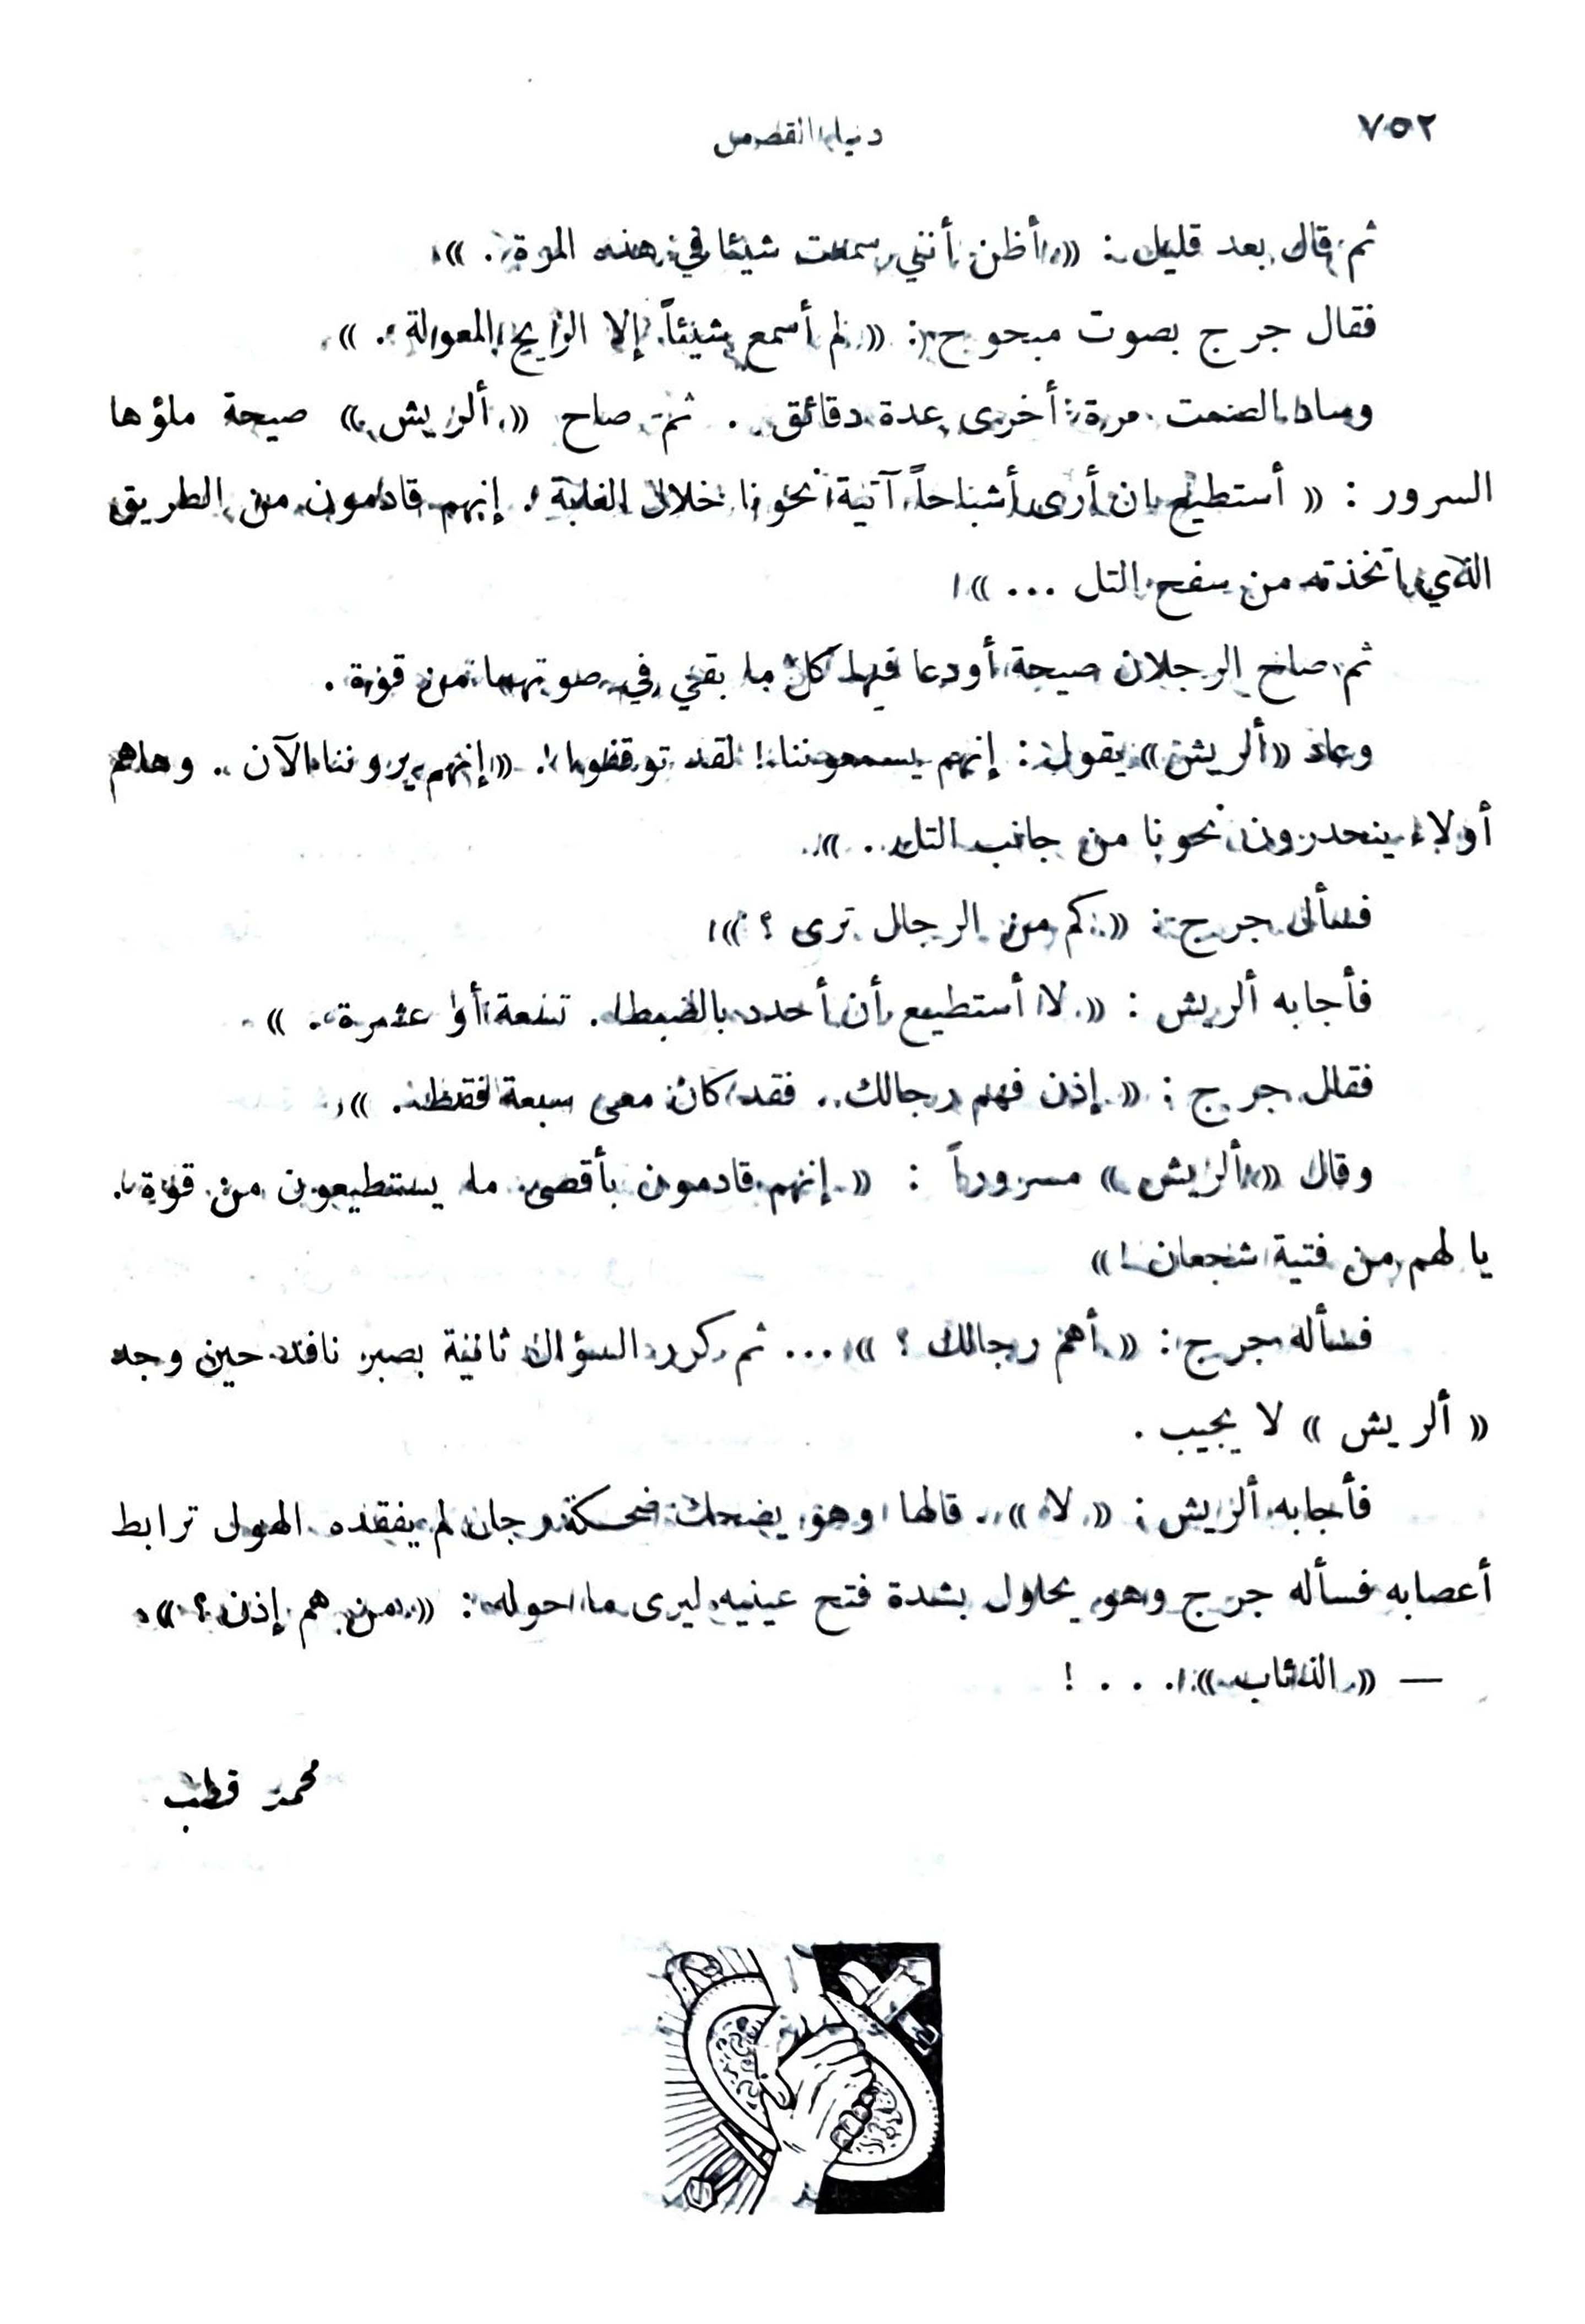 ٧٥٢
دنيا القصص
ثم قال بعد قليل : « أظن أنني سمعت شيئا في هذه المرة . »
فقال جرج بصوت مبحوح : « لم أسمع شيئاً إلا الرايح المعوالة . »
وساد الصمت مرة أخرى عدة دقائق . ثم صاح « ألريش » صيحة ملؤها
السرور : « أستطيع ان أرى أشباحاً آتية نحونا خلال الغابة . إنهم قادمون من الطريق
الذي اتخذته من سفح التل ... »
ثم صاح الرجلان صيحة أودعا فيها كل ما بقي في صوتهما من قوة .
وعاد « ألريش » يقول : إنهم يسمعوننا ! لقد توقفوا ! « إنهم يروننا الآن .. وهاهم
أولاء ينحدرون نحونا من جانب التل .. »
فسأل جرج : « كم من الرجال ترى ؟ »
فأجابه ألريش : « لا أستطيع أن أحدد بالضبط . تسعة أو عشرة . »
فقال جرج : « إذن فهم رجالك .. فقد كان معى سبعة فقط . »
وقال « ألريش » مسروراً : « إنهم قادمون بأقصى ما يستطيعون من قوة .
يا لهم من فتية شجعان ! »
فسأله جرج : « أهم رجالك ؟ » ... ثم كرر السؤال ثانية بصبر نافد حين وجد
« ألريش » لا يجيب .
فأجابه ألريش : « لا » .. قالها وهو يضحك ضحكة رجل لم يفقده الهول ترابط
أعصابه فسأله جرج وهو يحاول بشدة فتح عينيه ليرى ما حوله : « من هم إذن ؟ »
— « الذئاب » . . . !
محمد قطب